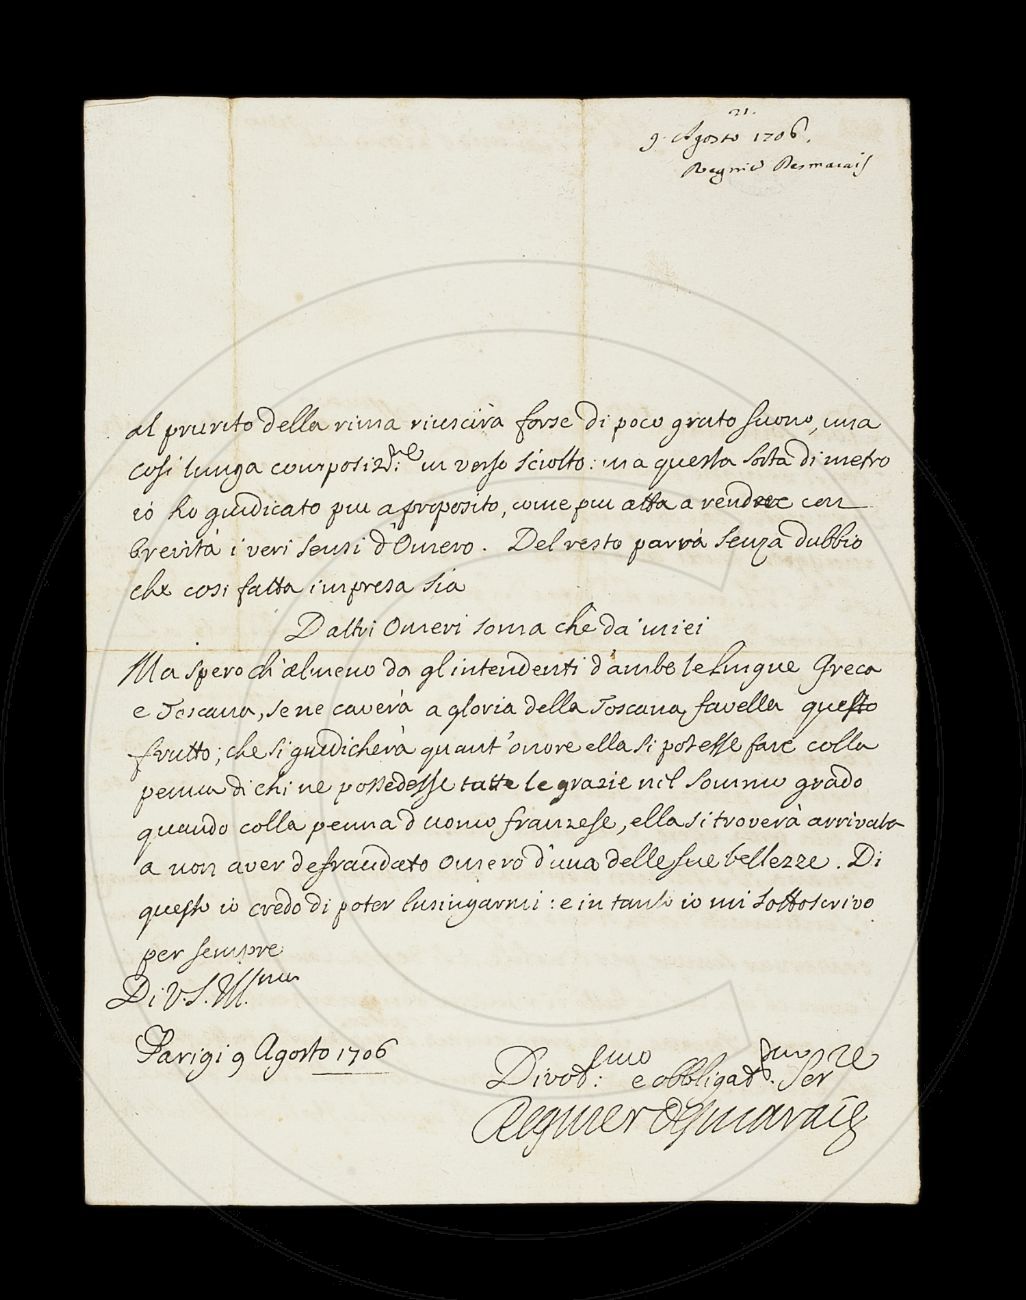 21.
9. Agosto 1706.
Regnie Desmarais
al prurito della rima riuscirà forse di poco grato suono, una
così lunga composiz.ne in verso sciolto: ma questa sorta di metro
io ho giudicato piu a proposito, come piu atta a rendere con
brevità i veri sensi d'Omero. Del resto parrà senza dubbio
che cosi fatta impresa sia
D'altri Omeri soma che da' miei
Ma spero ch'almeno da gl'intendenti d'ambe le lingue Greca
e Toscana, se ne caverà a gloria della Toscana favella questo
frutto; che si giudicherà quant'onore ella si potesse fare colla
penna di chi ne possedesse tutte le grazie nel sommo grado
quando colla penna d'uomo franzese, ella si troverà arrivata
a non aver defraudato Omero d'una delle sue bellezze. Di
questo io credo di poter lusingarmi: e in tanto io mi sottoscrivo
per sempre
Di V. S. Ill.ma
Parigi 9 Agosto 1706
Divot.smo e obbligat.smo Serre
Regnier Desmarais